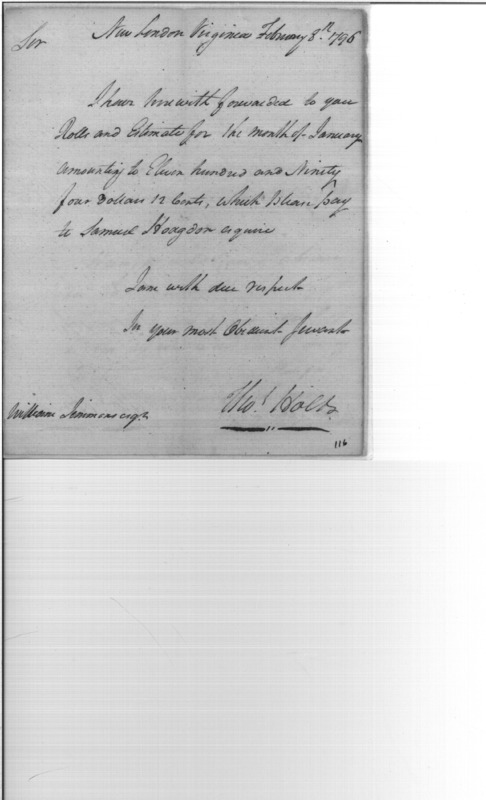 New London Virginia February 8th. 1796
Sir
I have herewith forwarded to you
Rolls and Estimate for the month of January
amounting to Eleven hundred and Ninety
four Dollars 12 Cents, which Please pay
to Samuel Hodgdon esquire
I am with due respect
Sir your most Obedient Servant
Thos. Holt
William Simmons esqr.
116